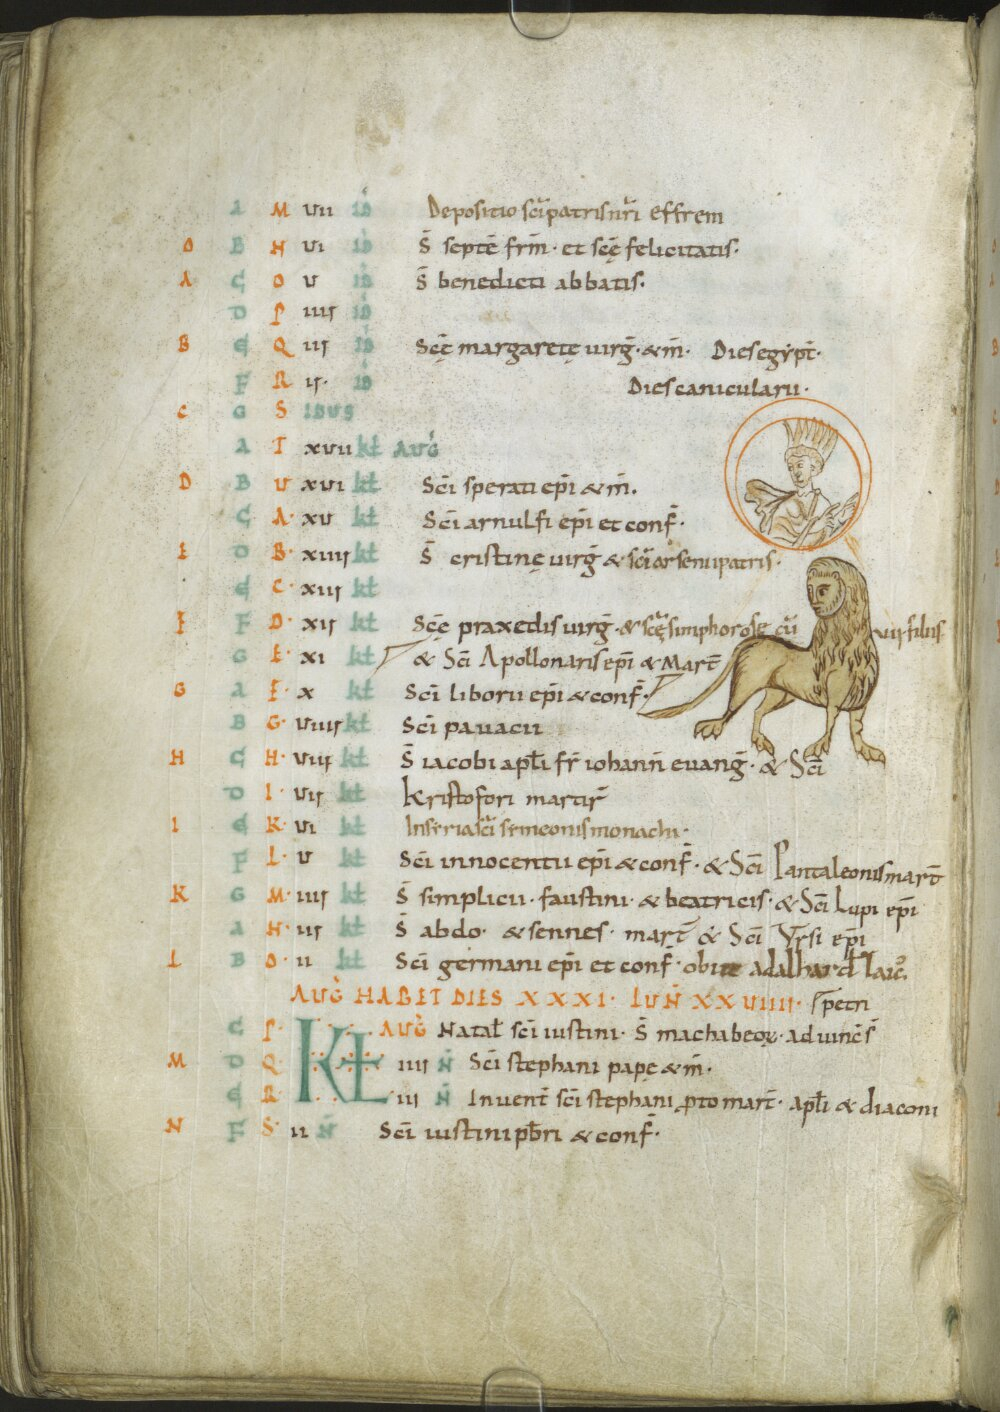 A M vii id Depositio sc̄i patris nr̄i effrem
O B N vi id S̄ septē frm̄· et scę̄ felicitatis·
A C O v id S̄ benedicti abbatis·
D P iiii id
B E Q iii id Scę̄ margaretę uirḡ· & m̄· Dies egypt̄·
F R ii· id Dies canicularii·
C G S idus
A T xvii kł AUḠ
D B U xvi kł Scī sperati ep̄i & m̄·
C A· xv kł Scī arnulfi ep̄i et conf̄·
E D B· xiiii kł S̄ cristinę uirḡ & sc̄i arsenii patris·
E C· xiii kł
F F D· xii kł Scę̄ praxedis uirḡ· & scę̄ simphorose cū vii filiis
G E· xi kł & Scī Apollonaris ep̄i & Mart̄
G A F· x kł Scī liborii ep̄i & conf̄·
B G· viiii kł Scī pauacii
H C H· viii kł S̄ iacobi apłi fr̄ iohann̄ euanḡ· & Scī
D I· vii kł Kristofori martir̄
I E K· vi kł sc̄i symeonis monachi·
F L· v kł Scī innocentii ep̄i & conf̄· & Scī Pantaleonis mart̄
K G M· iiii kł S̄ simplicii· faustini· & beatricis· & Scī Lupi ep̄i
A N· iii kł S̄ abdo· & sennes· mart̄ & Scī Ursi ep̄i
L B O· ii kł Scī germani ep̄i et conf̄· obiit adalhard laic̄·
AUḠ HABET DIES XXXI· LUN̄ XXVIIII· s̄ petri
C P· KŁ AUḠ Natał scī iustini· S̄ machabeoꝝ· ad uinc̄
M D Q· iiii N̄ Scī stephani papę & m̄·
E R· iii N̄ Inuent̄ scī stephani ꝓtomart̄· apłi & diaconi
N F S· ii N̄ Scī iustini pb̄ri & conf̄·